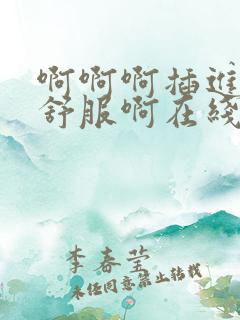 啊啊啊插进
舒服啊在线
李春莹
未经同意禁止转载